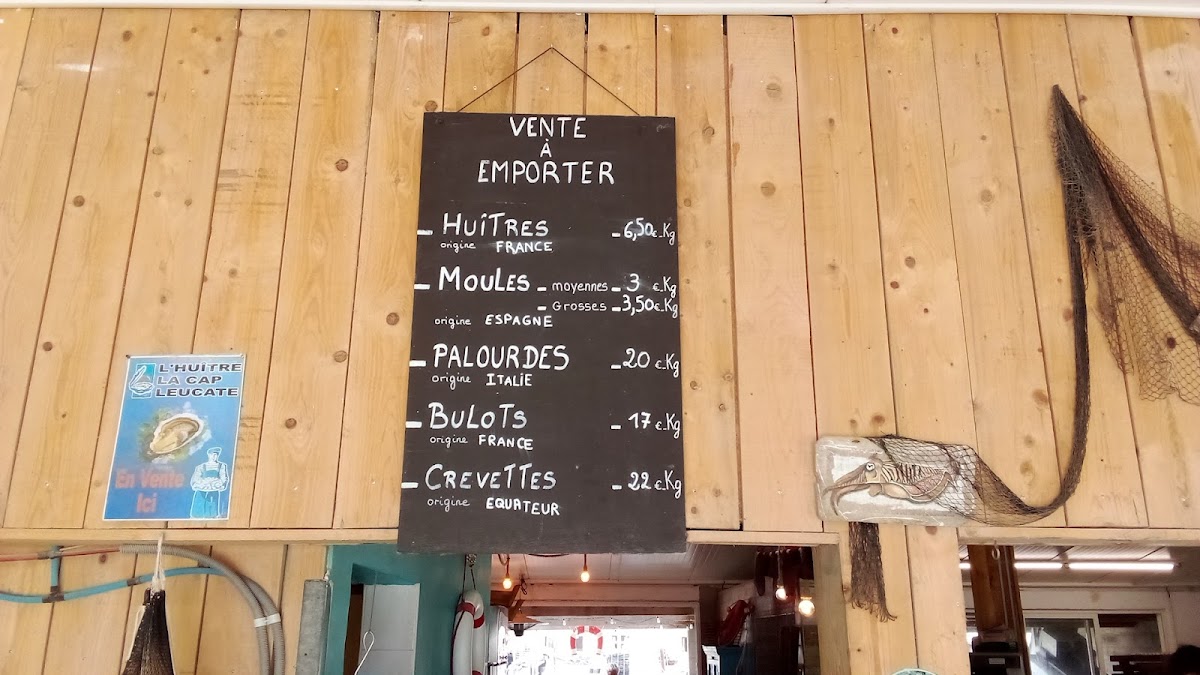 VENTE
À
EMPORTER
- HUÎTRES - 6,50 €.Kg
origine FRANCE
- MOULES - moyennes - 3 €.Kg
- GROSSES - 3,50€.Kg
origine ESPAGNE
- PALOURDES - 20 €.Kg
origine ITALIE
- BULOTS - 17 €.Kg
origine FRANCE
- CREVETTES - 22 €.Kg
origine EQUATEUR
L'HUÎTRE
LA CAP
LEUCATE
En Vente
Ici